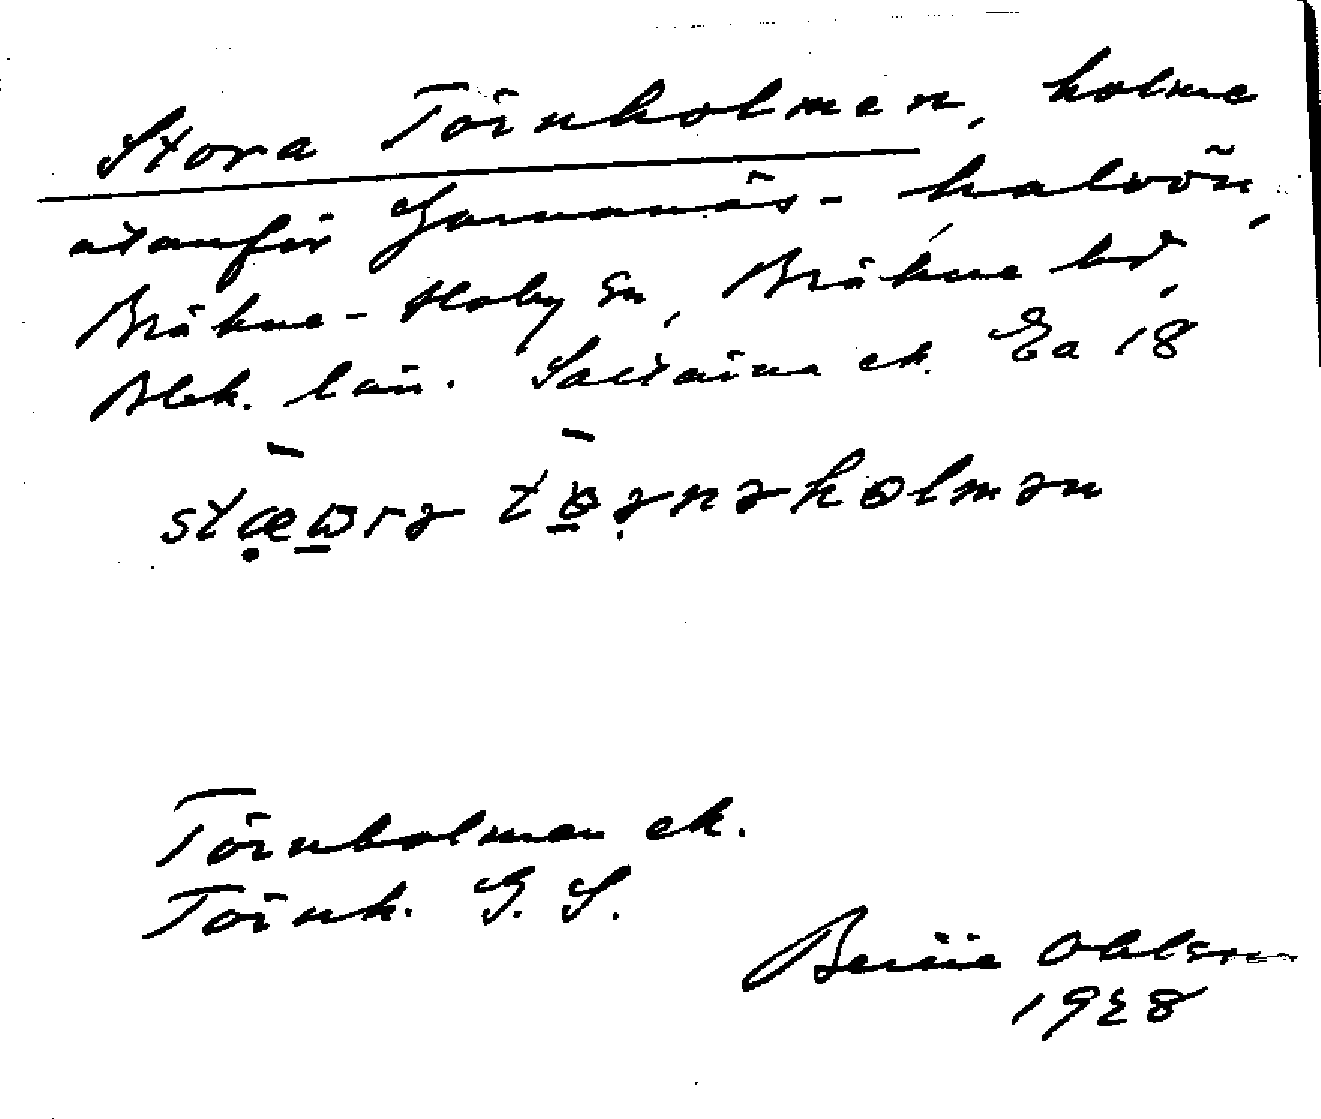 Stora Törnholmen, holme
utanför Garnanäs-halvön,
Bräkne-Hoby sn, Bräkne hd,
Blek. län. Saltärna ek. Ea 18
stæωrə tɵ̱ənəholmən
Törnholmen ek.
Törnh. G. S.
Bertil Ohlsson
1928